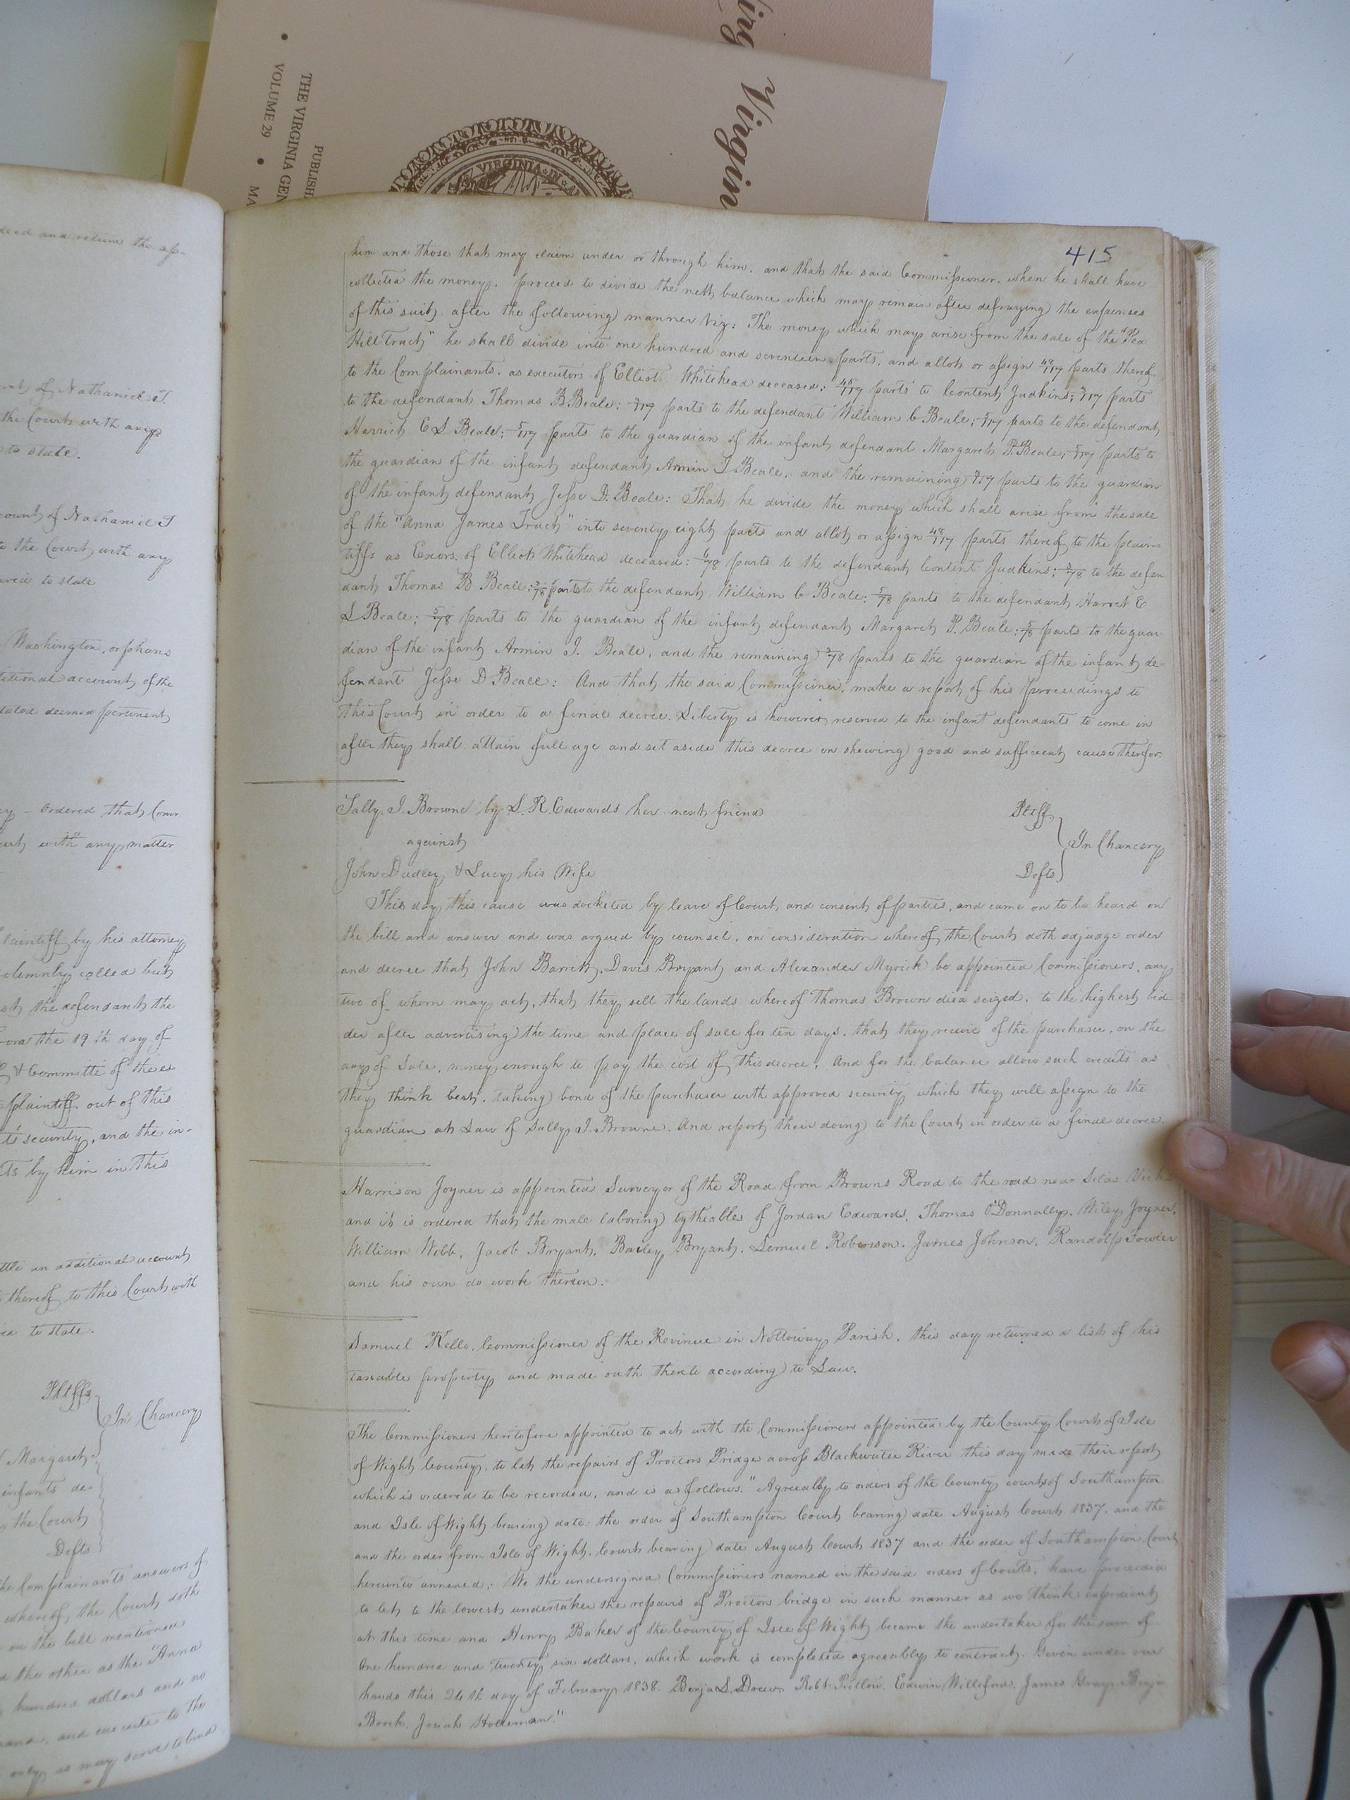 Virginia
Virgin
PUBLISH
THE VIRGINIA GEN
VOLUME 29 • MA
VIRGINIA
415
him and those that may claim under or through him, and that the said Commissioner, when he shall have
collected the money, proceed to divide the nett balance which may remain after defraying the expenses
of this suit, after the following manner Viz: The money which may arise from the sale of the "Pea
Hill Tract" he shall divide into one hundred and seventeen parts, and allot or assign 48/117 parts thereof
to the Complainants, as executors of Elliott Whitehead deceased; parts to Content Judkins; parts
to the defendant Thomas B. Beale; parts to the defendant William C Beale; parts to the defendant
Harriet E S Beale; parts to the guardian of the infant defendant Margaret P. Beale; parts to
the guardian of the infant defendant Armin J. Beale, and the remaining parts to the guardian
of the infant defendant Jesse D. Beale: That he divide the money which shall arise from the sale
of the "Anna James Tract" into seventy eight parts and allot or assign 48/117 parts thereof to the plain
tiffs as Exors. of Elliott Whitehead deceased: parts to the defendant Content Judkins; to the defen
dant Thomas B Beale: parts to the defendant William C Beale; parts to the defendant Harriet E
S Beale; parts to the guardian of the infant defendant Margaret P. Beale; parts to the guar
dian of the infant Armin J. Beale, and the remaining parts to the guardian of the infant de
fendant Jesse D Beale: And that the said Commissioner make a report of his proceedings to
this Court in order to a final decree. Liberty is however reserved to the infant defendants to come in
after they shall attain full age and set aside this decree on shewing good and sufficient cause therefor.
Sally J. Browne by S. R. Edwards her next friend Pltff
against In Chancery
John Dudley & Lucy his Wife Defts
This day this cause was docketed by leave of Court and consent of parties, and came on to be heard on
the bill and answer and was argued by counsel, on consideration whereof the Court doth adjudge order
and decree that John Barrett, Davis Bryant and Alexander Myrick be appointed Commissioners, any
two of whom may act, that they sell the lands whereof Thomas Brown died seized, to the highest bid
der after advertising the time and place of sale for ten days, that they receive of the purchaser, on the
day of Sale, money enough to pay the cost of this decree, And for the balance allow such credits as
they think best, taking bond of the purchaser with approved security which they will assign to the
guardian at Law of Sally J. Browne, And report their doing to the Court in order to a final decree.
Harrison Joyner is appointed Surveyor of the Road from Browns Road to the road near Silas
and it is ordered that the male laboring tytheables of Jordan Edwards, Thomas O'Donnally, Wiley Joyner,
William Webb, Jacob Bryant, Bailey Bryant, Lemuel Roberson, James Johnson, Randolph
and his own do work thereon.
Samuel Kello, Commissioner of the Revinue in Nottoway Parish, this day returned a list of his
taxable property and made oath thereto according to Law.
The Commissioners heretofore appointed to act with the Commissioners appointed by the County Court of Isle
of Wight County, to let the repairs of Proctors Bridge across Blackwater River this day made their report
which is ordered to be recorded, and is as follows. "Agreeably to orders of the County courts of Southampton
and Isle of Wight bearing date, the order of Southampton Court bearing date August Court 1837, and the
and the order from Isle of Wight Court bearing date August Court 1837 and the order of Southampton Court
hereunto annexed; We the undersigned Commissioners named in the said orders of Courts, have proceeded
to let to the lowest undertaker the repairs of Proctors bridge in such manner as we think expedient
at this time and Henry Baker of the County of Isle of Wight became the undertaker for the sum of
One hundred and twenty six dollars, which work is completed agreeably to contract. Given under our
hands this 24th day of February 1838. Benja. S. Drew. Robt. Edwin James Gray Benja
Josiah Holleman."
deed and return the ap-
of Nathaniel T
the Court with any
to state.
count of Nathaniel T
to the Court with any
to state
Washington, orphans
ditional account of the
stated deemed pertinent
ordered that Com
with any matter
laintiff by his attorney
solemnly called but
the defendant the
the 19th day of
& Committee of the es
plaintiff out of this
security, and the in-
by him in this
ttle an additional account
thereof to this Court with
to state.
Pltffs
In Chancery
Margaret
infants de-
the Court
Defts
the Complainants answers of
whereof the Court doth
on the bill mentioned
the other as the "Anna
hundred dollars and no
and, and execute to the
only as may serve to bind